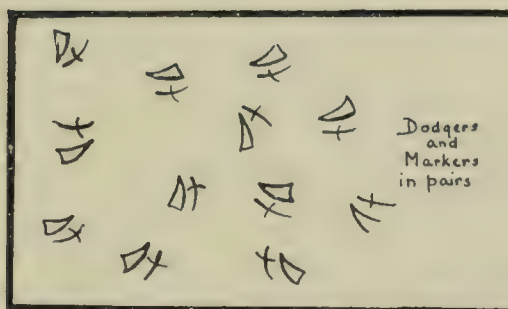 Dodgers
and
Markers
in pairs